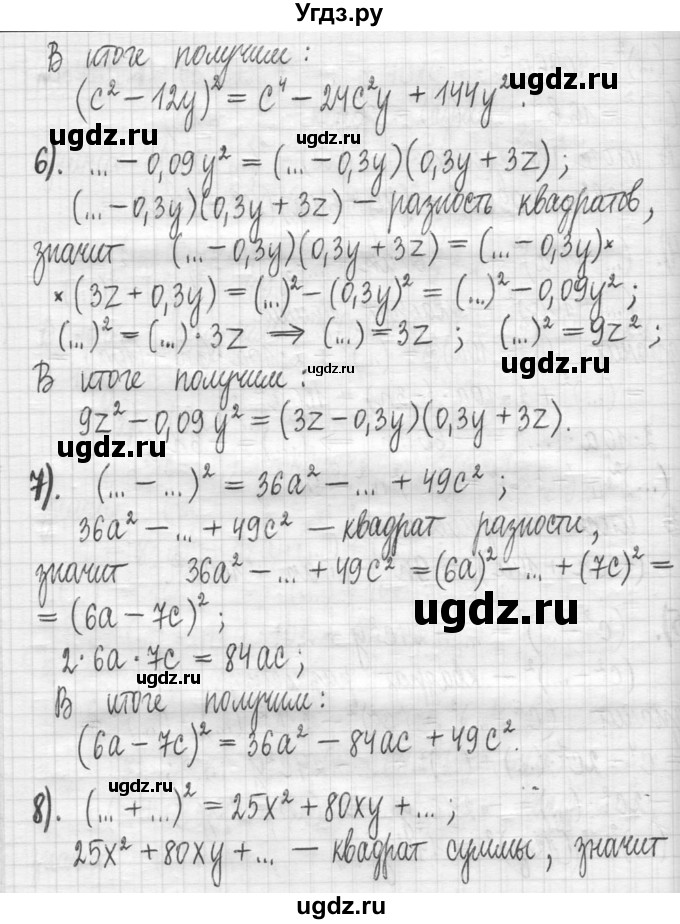 Угдз.ру
В итоге получим:
(c² − 12y)² = c⁴ − 24c²y + 144y².
ugdz.ru ugdz.ru
ugdz.ru ugdz.ru
6). ... − 0,09y² = (... − 0,3y)(0,3y + 3z);
(... − 0,3y)(0,3y + 3z) — разность квадратов,
значит (... − 0,3y)(0,3y + 3z) = (... − 0,3y)×
× (3z + 0,3y) = (...)² − (0,3y)² = (...)² − 0,09y²;
(...)² = (...)·3z ⇒ (...) = 3z ; (...)² = 9z² ;
В итоге получим:
ugdz.ru ugdz.ru
9z² − 0,09y² = (3z − 0,3y)(0,3y + 3z).
ugdz.ru
7). (... − ...)² = 36a² − ... + 49c² ;
36a² − ... + 49c² — квадрат разности,
ugdz.ru
значит 36a² − ... + 49c² = (6a)² − ... + (7c)² =
= (6a − 7c)² ;
ugdz.ru
2·6a·7c = 84ac;
ugdz.ru
В итоге получим:
(6a − 7c)² = 36a² − 84ac + 49c².
ugdz.ru
8). (... + ...)² = 25x² + 80xy + ... ;
25x² + 80xy + ... — квадрат суммы, значит
ugdz.ru